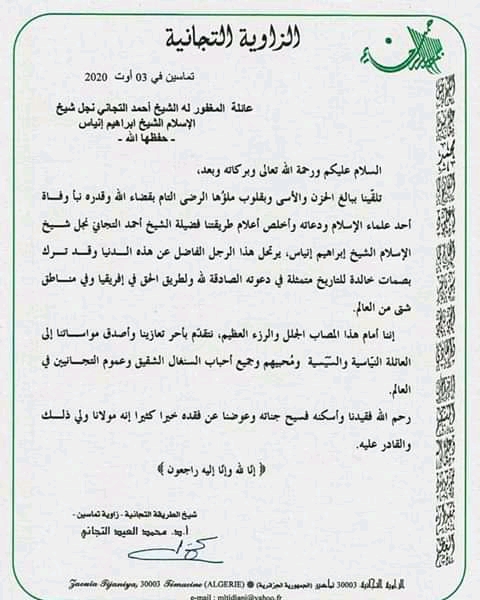 الزاوية التجانية
تماسين في 03 أوت 2020
عائلة المغفور له الشيخ أحمد التجاني نجل شيخ
الإسلام الشيخ ابراهيم إنياس
- حفظها الله -
السلام عليكم ورحمة الله تعالى وبركاته وبعد،
تلقّينا ببالغ الحزن والأسى وبقلوب ملؤها الرضى التام بقضاء الله وقدره نبأ وفاة
أحد علماء الإسلام ودعاته وأخلص أعلام طريقتنا فضيلة الشيخ أحمد التجاني نجل شيخ
الإسلام الشيخ إبراهيم إنياس، يرتحل هذا الرجل الفاضل عن هذه الدنيا وقد ترك
بصمات خالدة للتاريخ متمثلة في دعوته الصادقة لله ولطريق الحق في إفريقيا وفي مناطق
شتى من العالم.
إننا أمام هذا المصاب الجلل والرزء العظيم، نتقدّم بأحر تعازينا وأصدق مواساتنا إلى
العائلة النيّاسية والسّيّسية ومُحبيهم وجميع أحباب السنغال الشقيق وعموم التجانيين في
العالم.
رحم الله فقيدنا وأسكنه فسيح جناته وعوضنا عن فقده خيرا كثيرا إنه مولانا ولي ذلك
والقادر عليه.
﴿ إنّا لله وإنّا إليه راجعون ﴾
شيخ الطريقة التجانية - زاوية تماسين -
أ.د. محمد العيد التجاني
الزاوية التجانية 30003 تماسين (الجمهورية الجزائرية) Zaouia Tijaniya, 30003 Témacine (ALGERIE)
e-mail : mltidiani@yahoo.fr